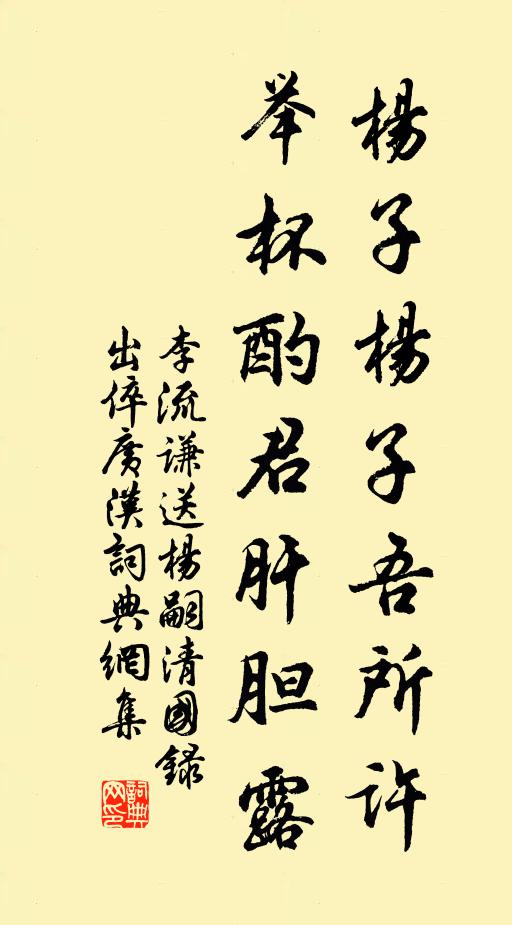 楊子楊子吾所许
举杯酌君肝胆露
李流谦送楊嗣清國録
出倅广漢詞典網集
詞典网印